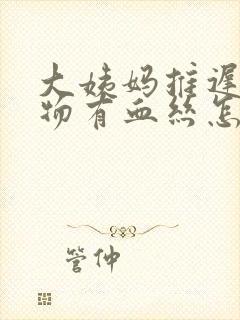 大姨妈推遲
物有血丝怎
管仲